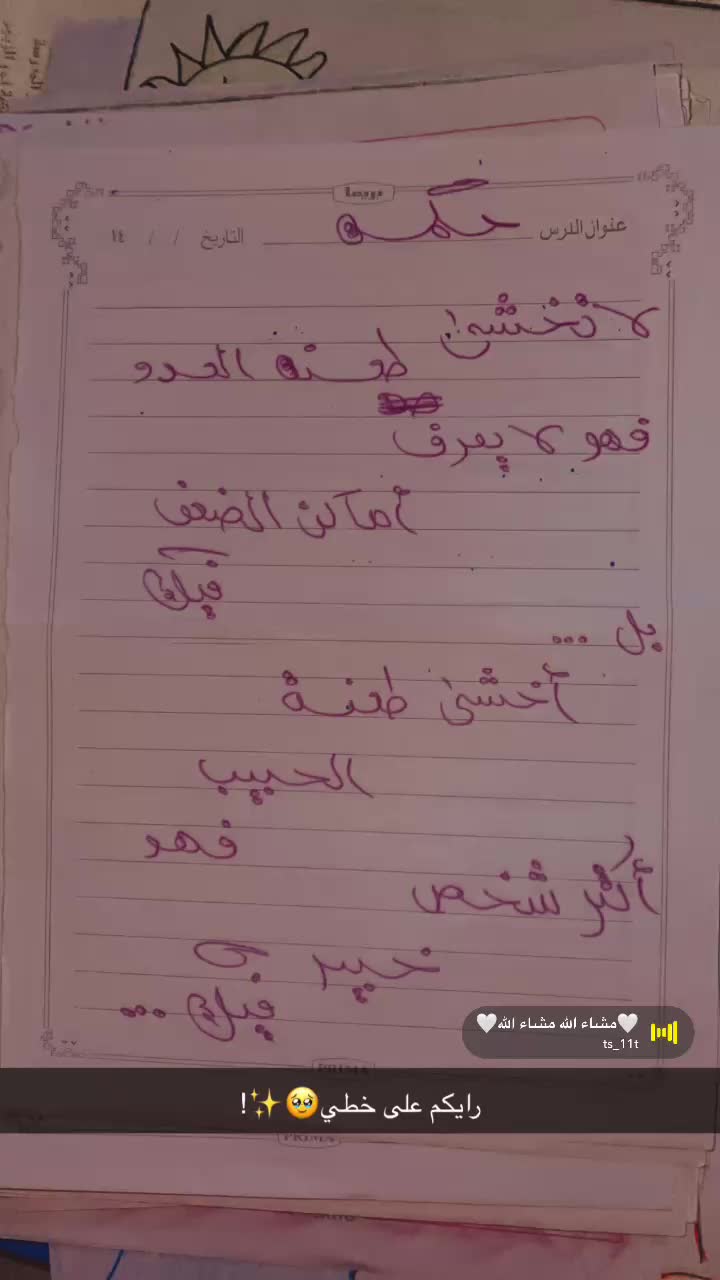 عنوان الدرس حكمه التاريخ / / ١٤
لا تخشى طعنه العدو
فهو لا يعرف
أماكن الضعف
فيك
بل ...
أخشى طعنة
الحبيب
فهو
أكثر شخص
خبير
فيك ...
🤍مشاء الله مشاء الله🤍
ts_11t
رايكم على خطي🥹✨!
PRIMA
PRIMA